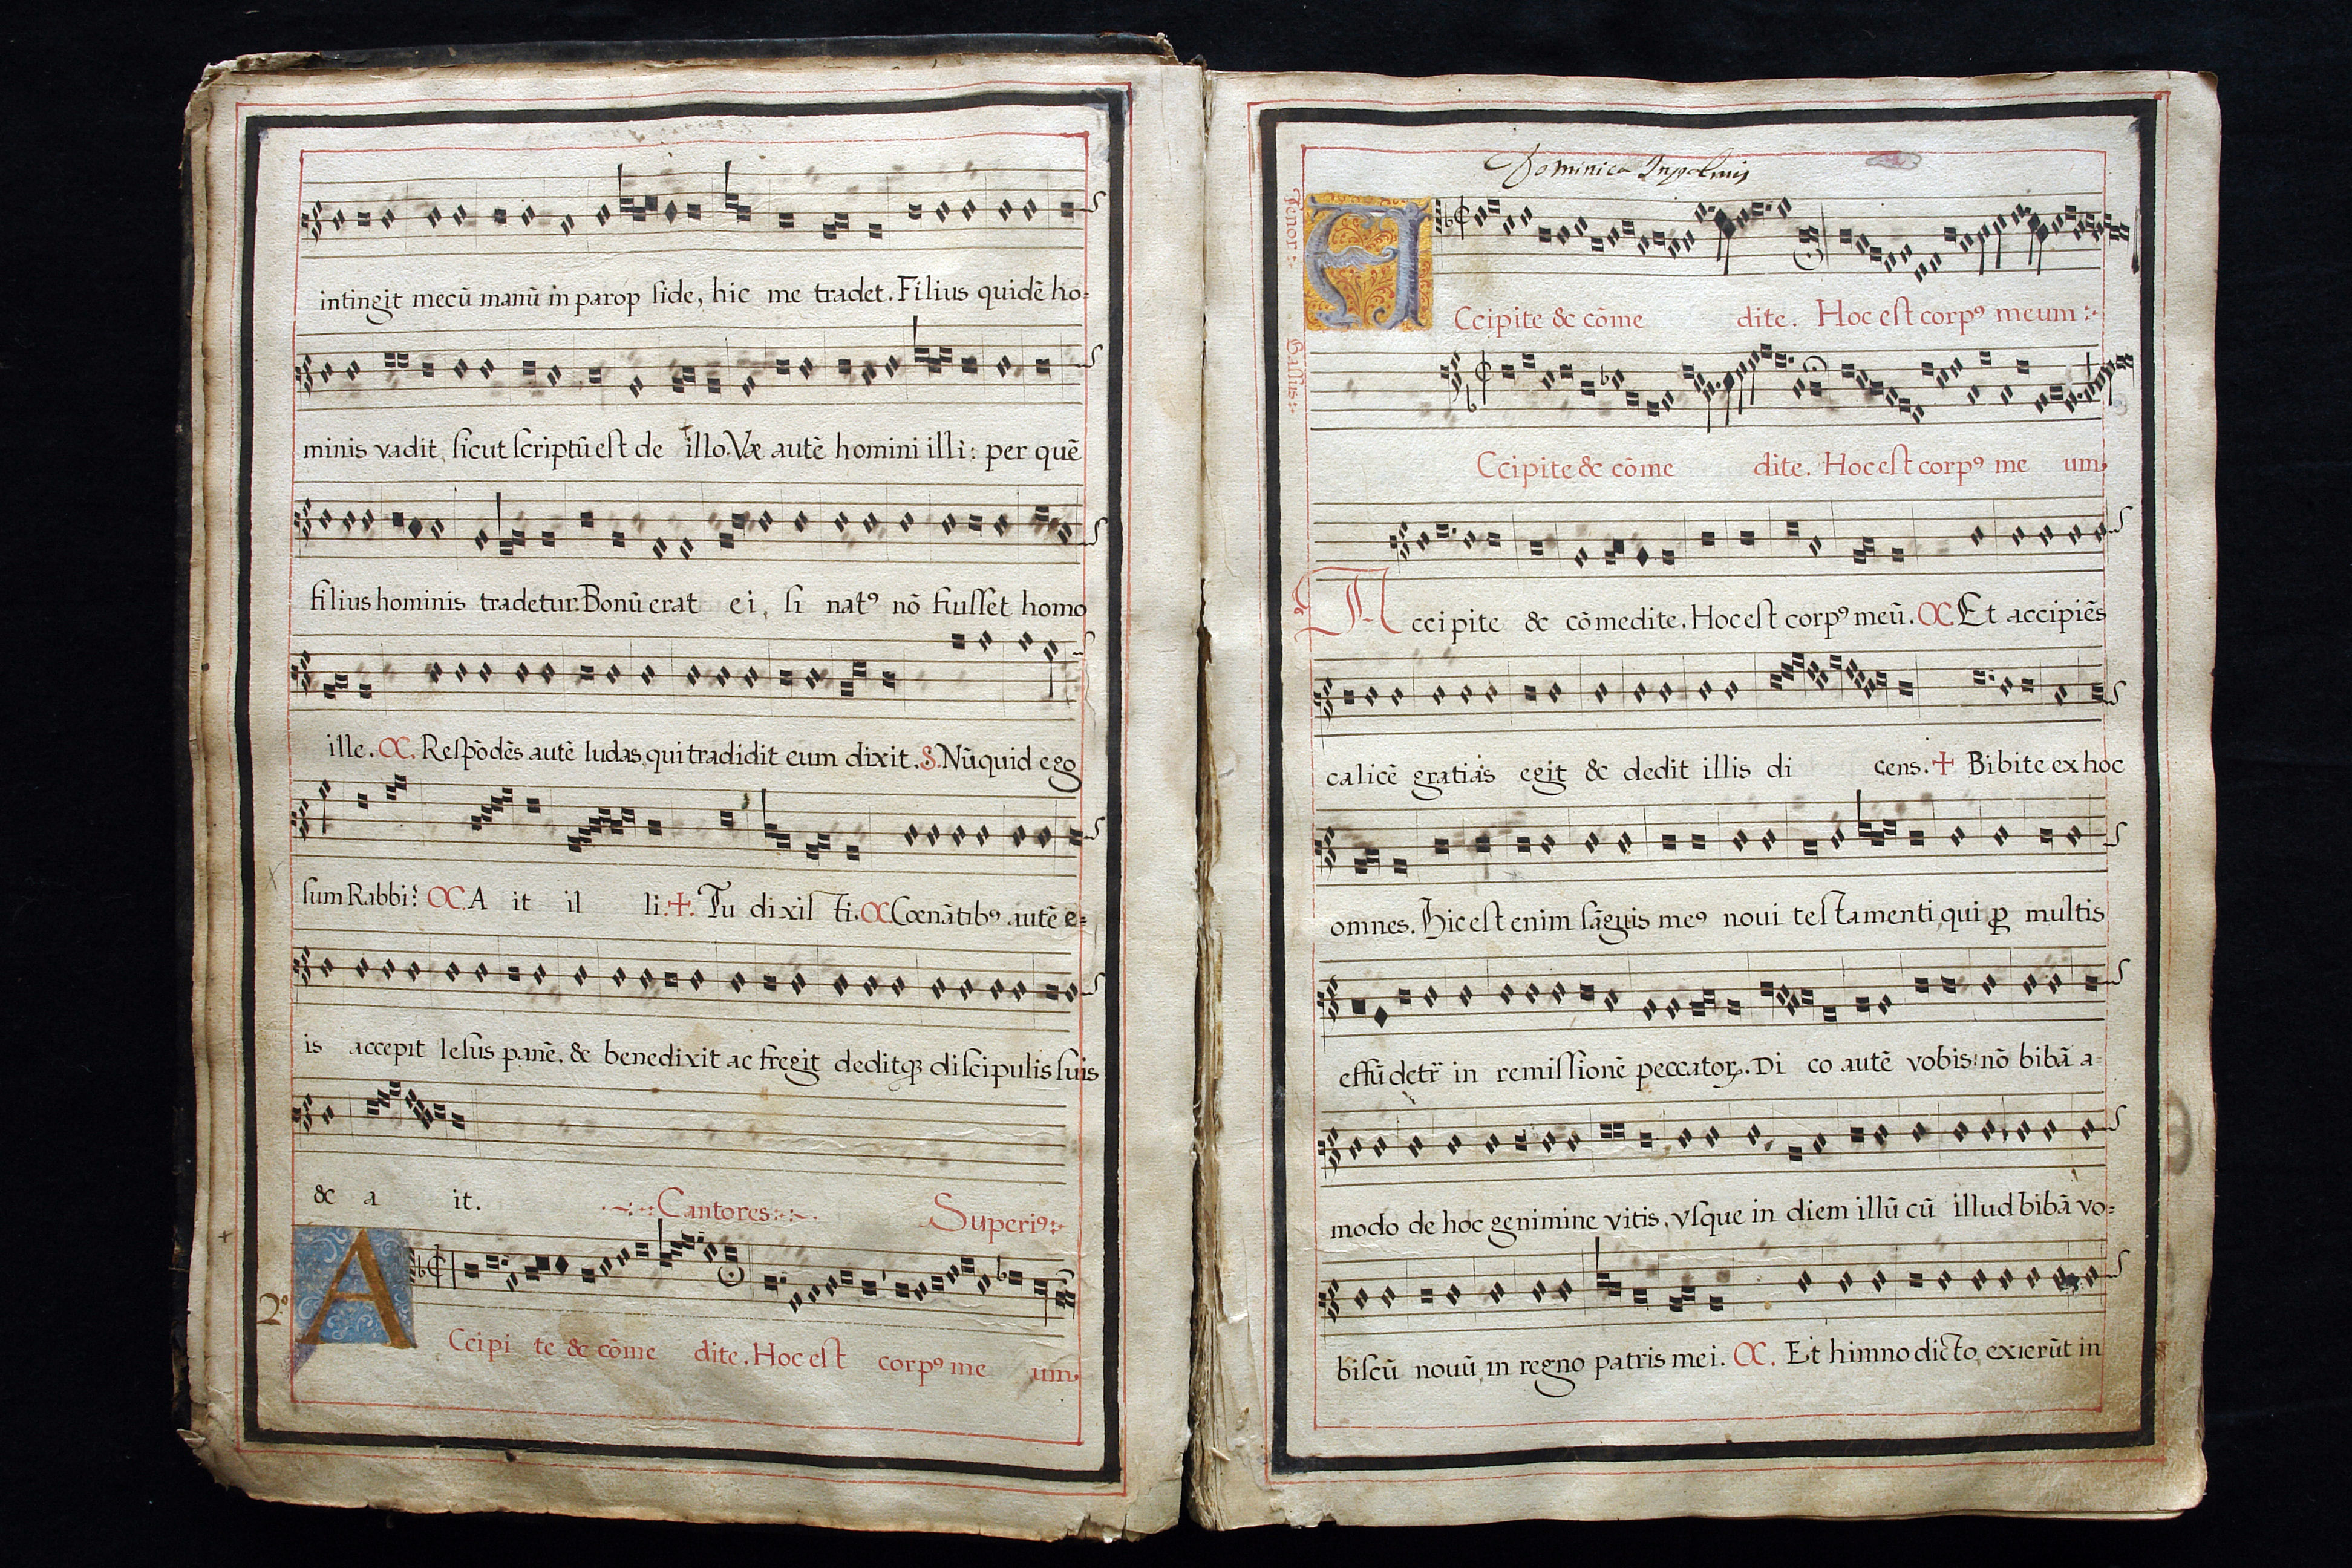 intingit mecū manū in parop side, hic me tradet. Filius quidē ho=
minis vadit, sicut scriptū est de illo. Væ autē homini illi: per quē
filius hominis tradetur. Bonū erat ei, si natꝰ nō fuisset homo
ille. C. Respōdēs autē Iudas, qui tradidit eum dixit. S. Nūquid ego
sum Rabbi? C. A it il li. ✝. Tu dixis ti. C. Cœnātibꝰ autē e=
is accepit Iesus panē, & benedixit ac fregit deditq; discipulis suis
& a it.
Cantores
Superiꝰ
2º
A Ccipi te & cōme dite. Hoc est corpꝰ me um.
Dominica Inpalmis
Tenor
A Ccipite & cōme dite. Hoc est corpꝰ meum
Bassus
Ccipite & cōme dite. Hoc est corpꝰ me um.
Accipite & cōmedite. Hoc est corpꝰ meū. C. Et accipiēs
calicē gratias egit & dedit illis di cens. ✝ Bibite ex hoc
omnes. Hic est enim sāguis meꝰ noui testamenti, qui ꝓ multis
effūdetr̄ in remissionē peccatoꝝ. Di co autē vobis: nō bibā a=
modo de hoc genimine vitis, vsque in diem illū cū illud bibā vo=
biscū nouū in regno patris mei. C. Et himno dicto, exierūt in